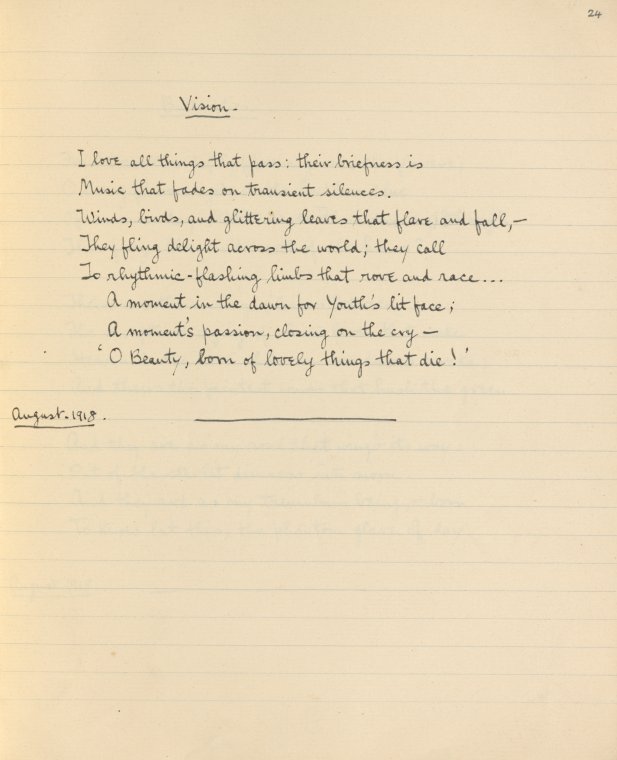 24
Vision.
I love all things that pass: their briefness is
Music that fades on transient silences.
Winds, birds, and glittering leaves that flare and fall,—
They fling delight across the world; they call
To rhythmic-flashing limbs that rove and race...
A moment in the dawn for Youth's lit face;
A moment's passion, closing on the cry —
'O Beauty, born of lovely things that die!'
August. 1918.